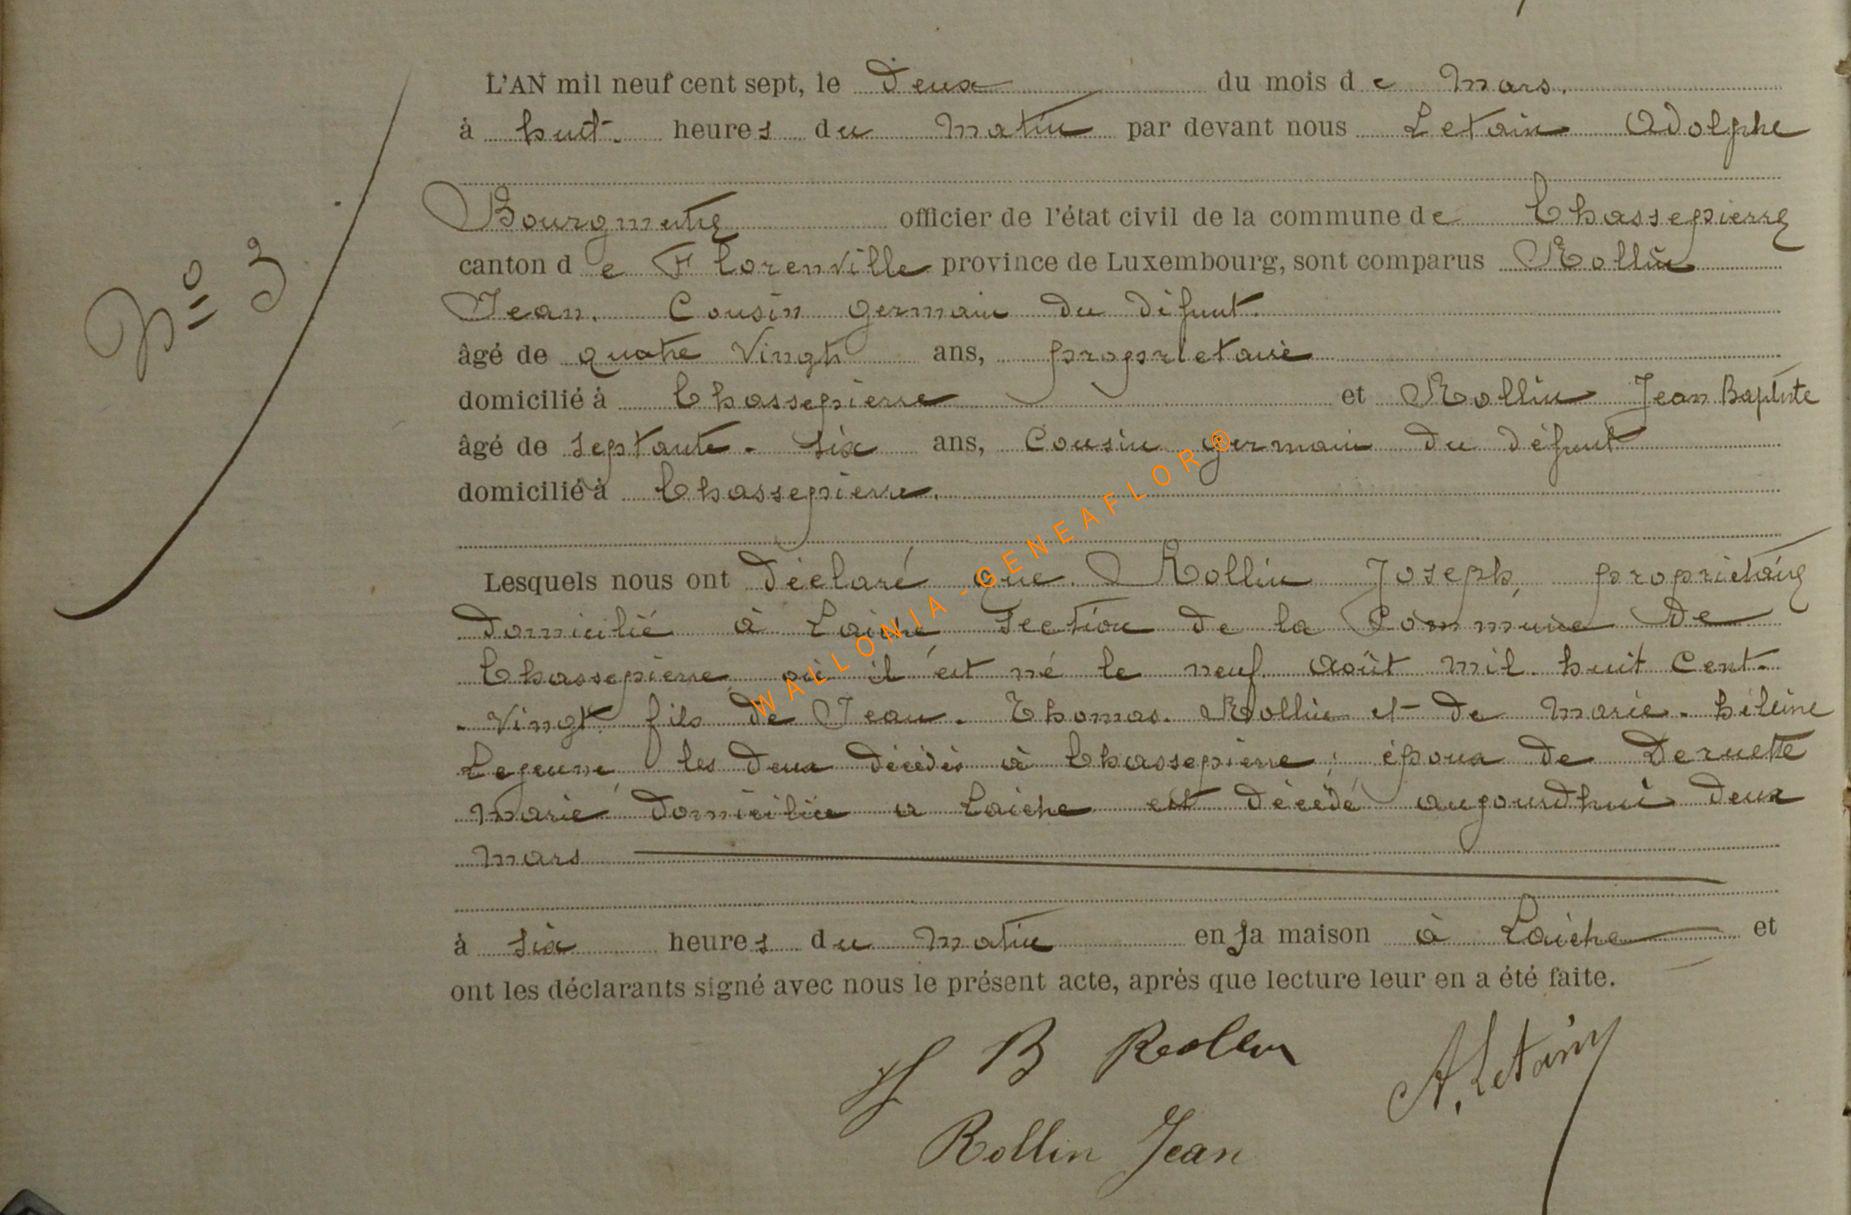 L'AN mil neuf cent sept, le Deux du mois de Mars.
à huit. heures du Matin par devant nous Letain Adolphe
Bourgmestre officier de l'état civil de la commune de Chassepierre
canton de Florenville province de Luxembourg, sont comparus Rollin
N° 3
Jean. Cousin germain du défunt.
âgé de quatre Vingts ans, proprietaire
domicilié à Chassepierre et Rollin Jean Baptiste
âgé de septante - six ans, Cousin germain du défunt
domicilié à Chassepierre.
Lesquels nous ont Déclaré que Rollin Joseph, proprietaire
Domicilié à Laiche section de la Commune de
Chassepierre, où il est né le neuf Août mil huit Cent-
- Vingt fils de Jean - Thomas Rollin et de Marie - hélène
Lejeune les deux décédés à Chassepierre; époux de Deruette
Marie Domiciliée a Laiche est décédé aujourdhui deux
Mars
à six heures du Matin en sa maison à Laiche et
ont les déclarants signé avec nous le présent acte, après que lecture leur en a été faite.
J B Rollin
A. Letain
Rollin Jean
WALLONIA-GENEAFLOR®